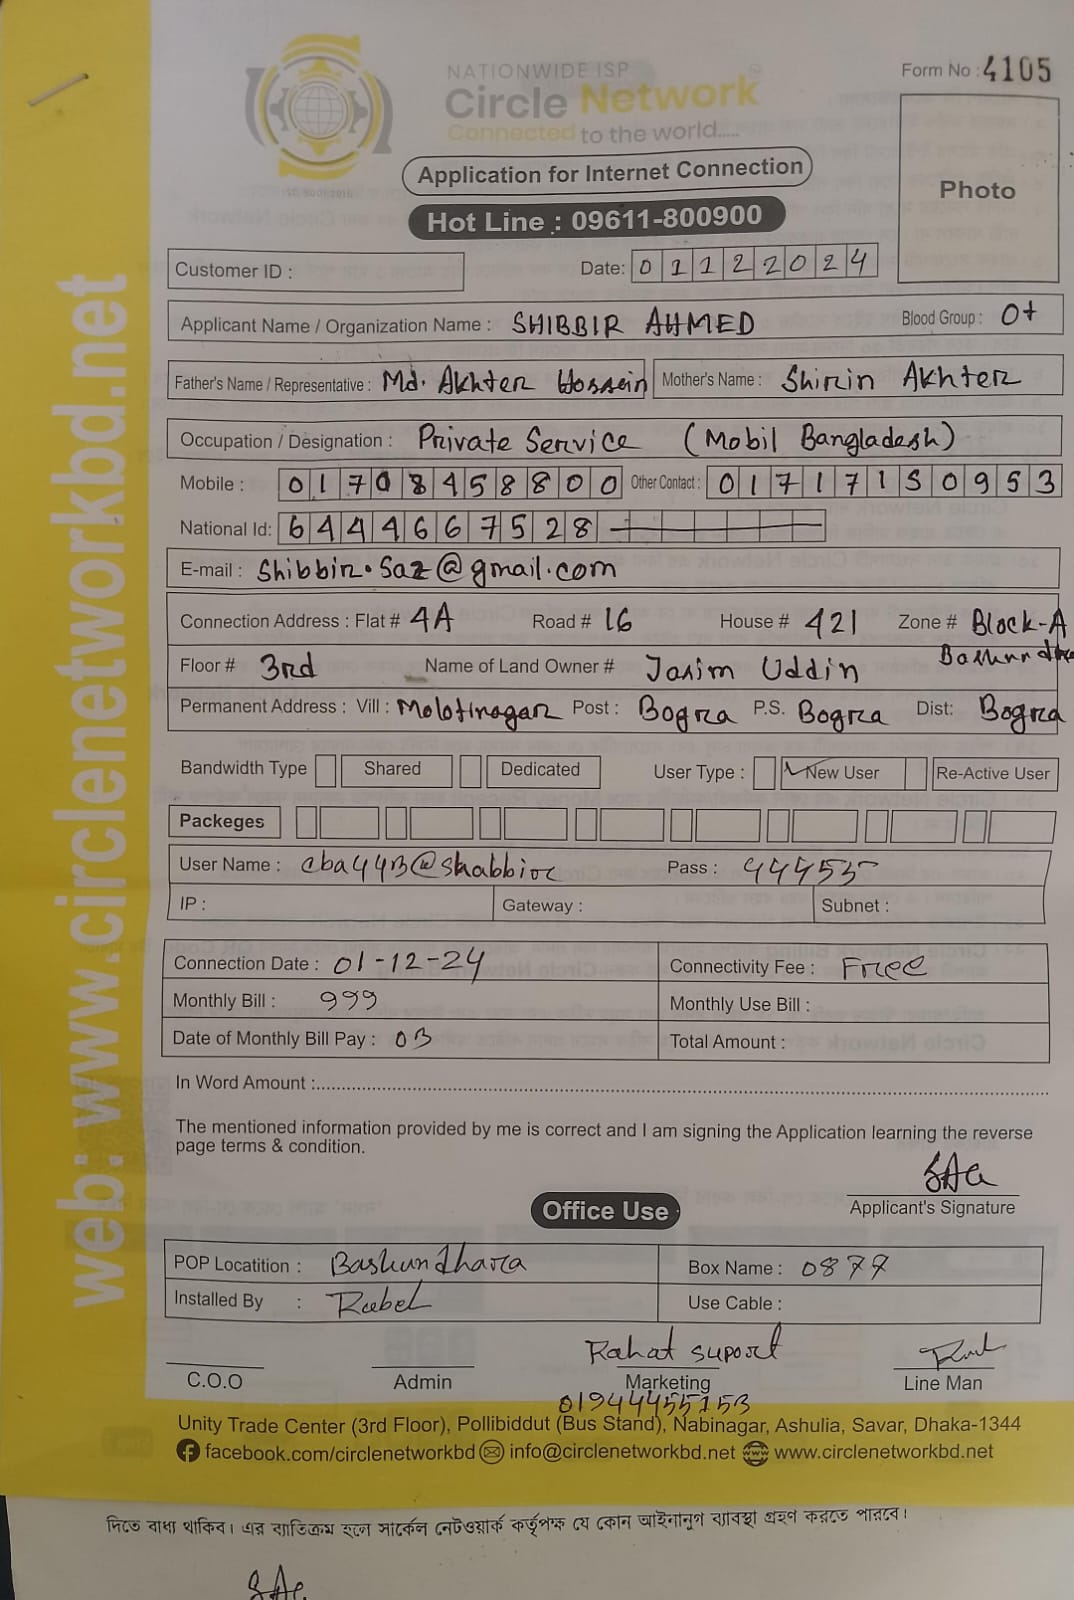 NATIONWIDE ISP
Circle Network
Connected to the world.....
ISO 9001:2015
Form No : 4105
Photo
Application for Internet Connection
Hot Line : 09611-800900
Customer ID :
Date: 01122024
Applicant Name / Organization Name : SHIBBIR AHMED Blood Group : O+
Father's Name / Representative : Md. Akhter Hossein Mother's Name : Shirin Akhter
Occupation / Designation : Private Service (Mobil Bangladesh)
Mobile : 01708458800 Other Contact : 01717150953
National Id: 6444667528
E-mail : Shibbir.Saz@gmail.com
Connection Address : Flat # 4A Road # 16 House # 421 Zone # Block-A
Floor # 3rd Name of Land Owner # Jasim Uddin
Permanent Address : Vill : Molotinagar Post : Bogra P.S. Bogra Dist: Bogra
Bandwidth Type Shared Dedicated User Type : New User Re-Active User
Packeges
User Name : Pass :
IP : Gateway : Subnet :
Connection Date : 01-12-24 Connectivity Fee : Free
Monthly Bill : 999 Monthly Use Bill :
Date of Monthly Bill Pay : 03 Total Amount :
In Word Amount :
The mentioned information provided by me is correct and I am signing the Application learning the reverse
page terms & condition.
Applicant's Signature
Office Use
POP Locatition : Bashundhara Box Name : 0877
Installed By : Rubel Use Cable :
Rahat suport
C.O.O Admin Marketing Line Man
01944455153
Unity Trade Center (3rd Floor), Pollibiddut (Bus Stand), Nabinagar, Ashulia, Savar, Dhaka-1344
facebook.com/circlenetworkbd info@circlenetworkbd.net www.circlenetworkbd.net
web: www.circlenetworkbd.net
দিতে বাধ্য থাকিব। এর ব্যতিক্রম হলে সার্কেল নেটওয়ার্ক কর্তৃপক্ষ যে কোন আইনানুগ ব্যবস্থা গ্রহণ করতে পারবে।